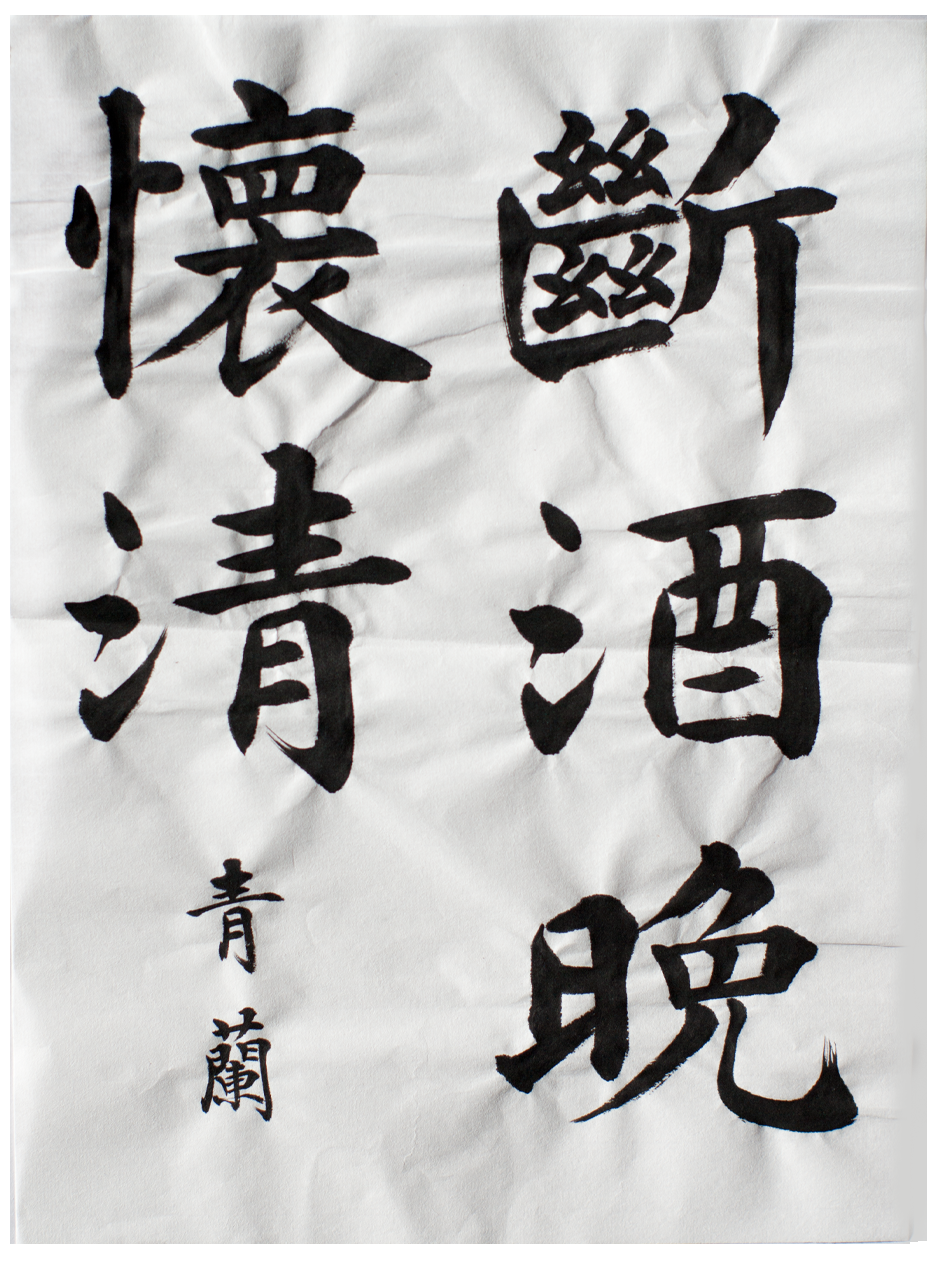 斷酒晩
懷清
青蘭